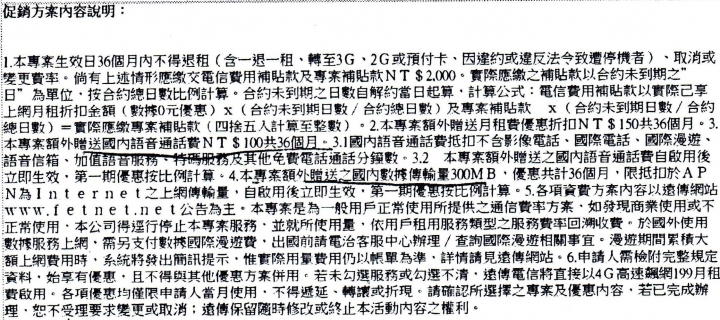 促銷方案內容說明：
1.本專案生效日36個月內不得退租（含一退一租、轉至3G、2G或預付卡、因違約或違反法令致遭停機者）、取消或
變更費率。倘有上述情形應繳交電信費用補貼款及專案補貼款NT＄2,000。實際應繳之補貼款以合約未到期之”
日”為單位，按合約總日數比例計算。合約未到期之日數自解約當日起算，計算公式：電信費用補貼款以實際已享
上網月租折扣金額（數據0元優惠）x（合約未到期日數／合約總日數）及專案補貼款　x（合約未到期日數／合約
總日數）＝實際應繳專案補貼款（四捨五入計算至整數）。2.本專案額外贈送月租費優惠折扣NT＄150共36個月。3.
本專案額外贈送國內語音通話費NT＄100共36個月。3.1國內語音通話費抵扣不含影像電話、國際電話、國際漫遊、
語音信箱、加值語音服務、特碼服務及其他免費電話通話分鐘數。3.2　本專案額外贈送之國內語音通話費自啟用後
立即生效，第一期優惠按比例計算。4.本專案額外贈送之國內數據傳輸量300MB，優惠共計36個月，限抵扣於AP
N為Internet之上網傳輸量，自啟用後立即生效，第一期優惠按比例計算。5.各項資費方案內容以遠傳網站
www.fetnet.net公告為主。本專案是為一般用戶正常使用所提供之通信費率方案，如發現商業使用或不
正常使用，本公司得逕行停止本專案服務，並就所使用量，依用戶租用服務類型之服務費率回溯收費。於國外使用
數據服務上網，需另支付數據國際漫遊費，出國前請電洽客服中心辦理／查詢國際漫遊相關事宜。漫遊期間累積大
額上網費用時，系統將發出簡訊提示，惟實際用量費用仍以帳單為準，詳情請見遠傳網站。6.申請人需檢附完整規定
資料，始享有優惠，且不得與其他優惠方案併用。若未勾選服務或勾選不清，遠傳電信將直接以4G高速飆網199月租
費啟用。各項優惠均僅限申請人當月使用，不得遞延、轉讓或折現。請確認所選擇之專案及優惠內容，若已完成辦
理，恕不受理要求變更或取消；遠傳保留隨時修改或終止本活動內容之權利。